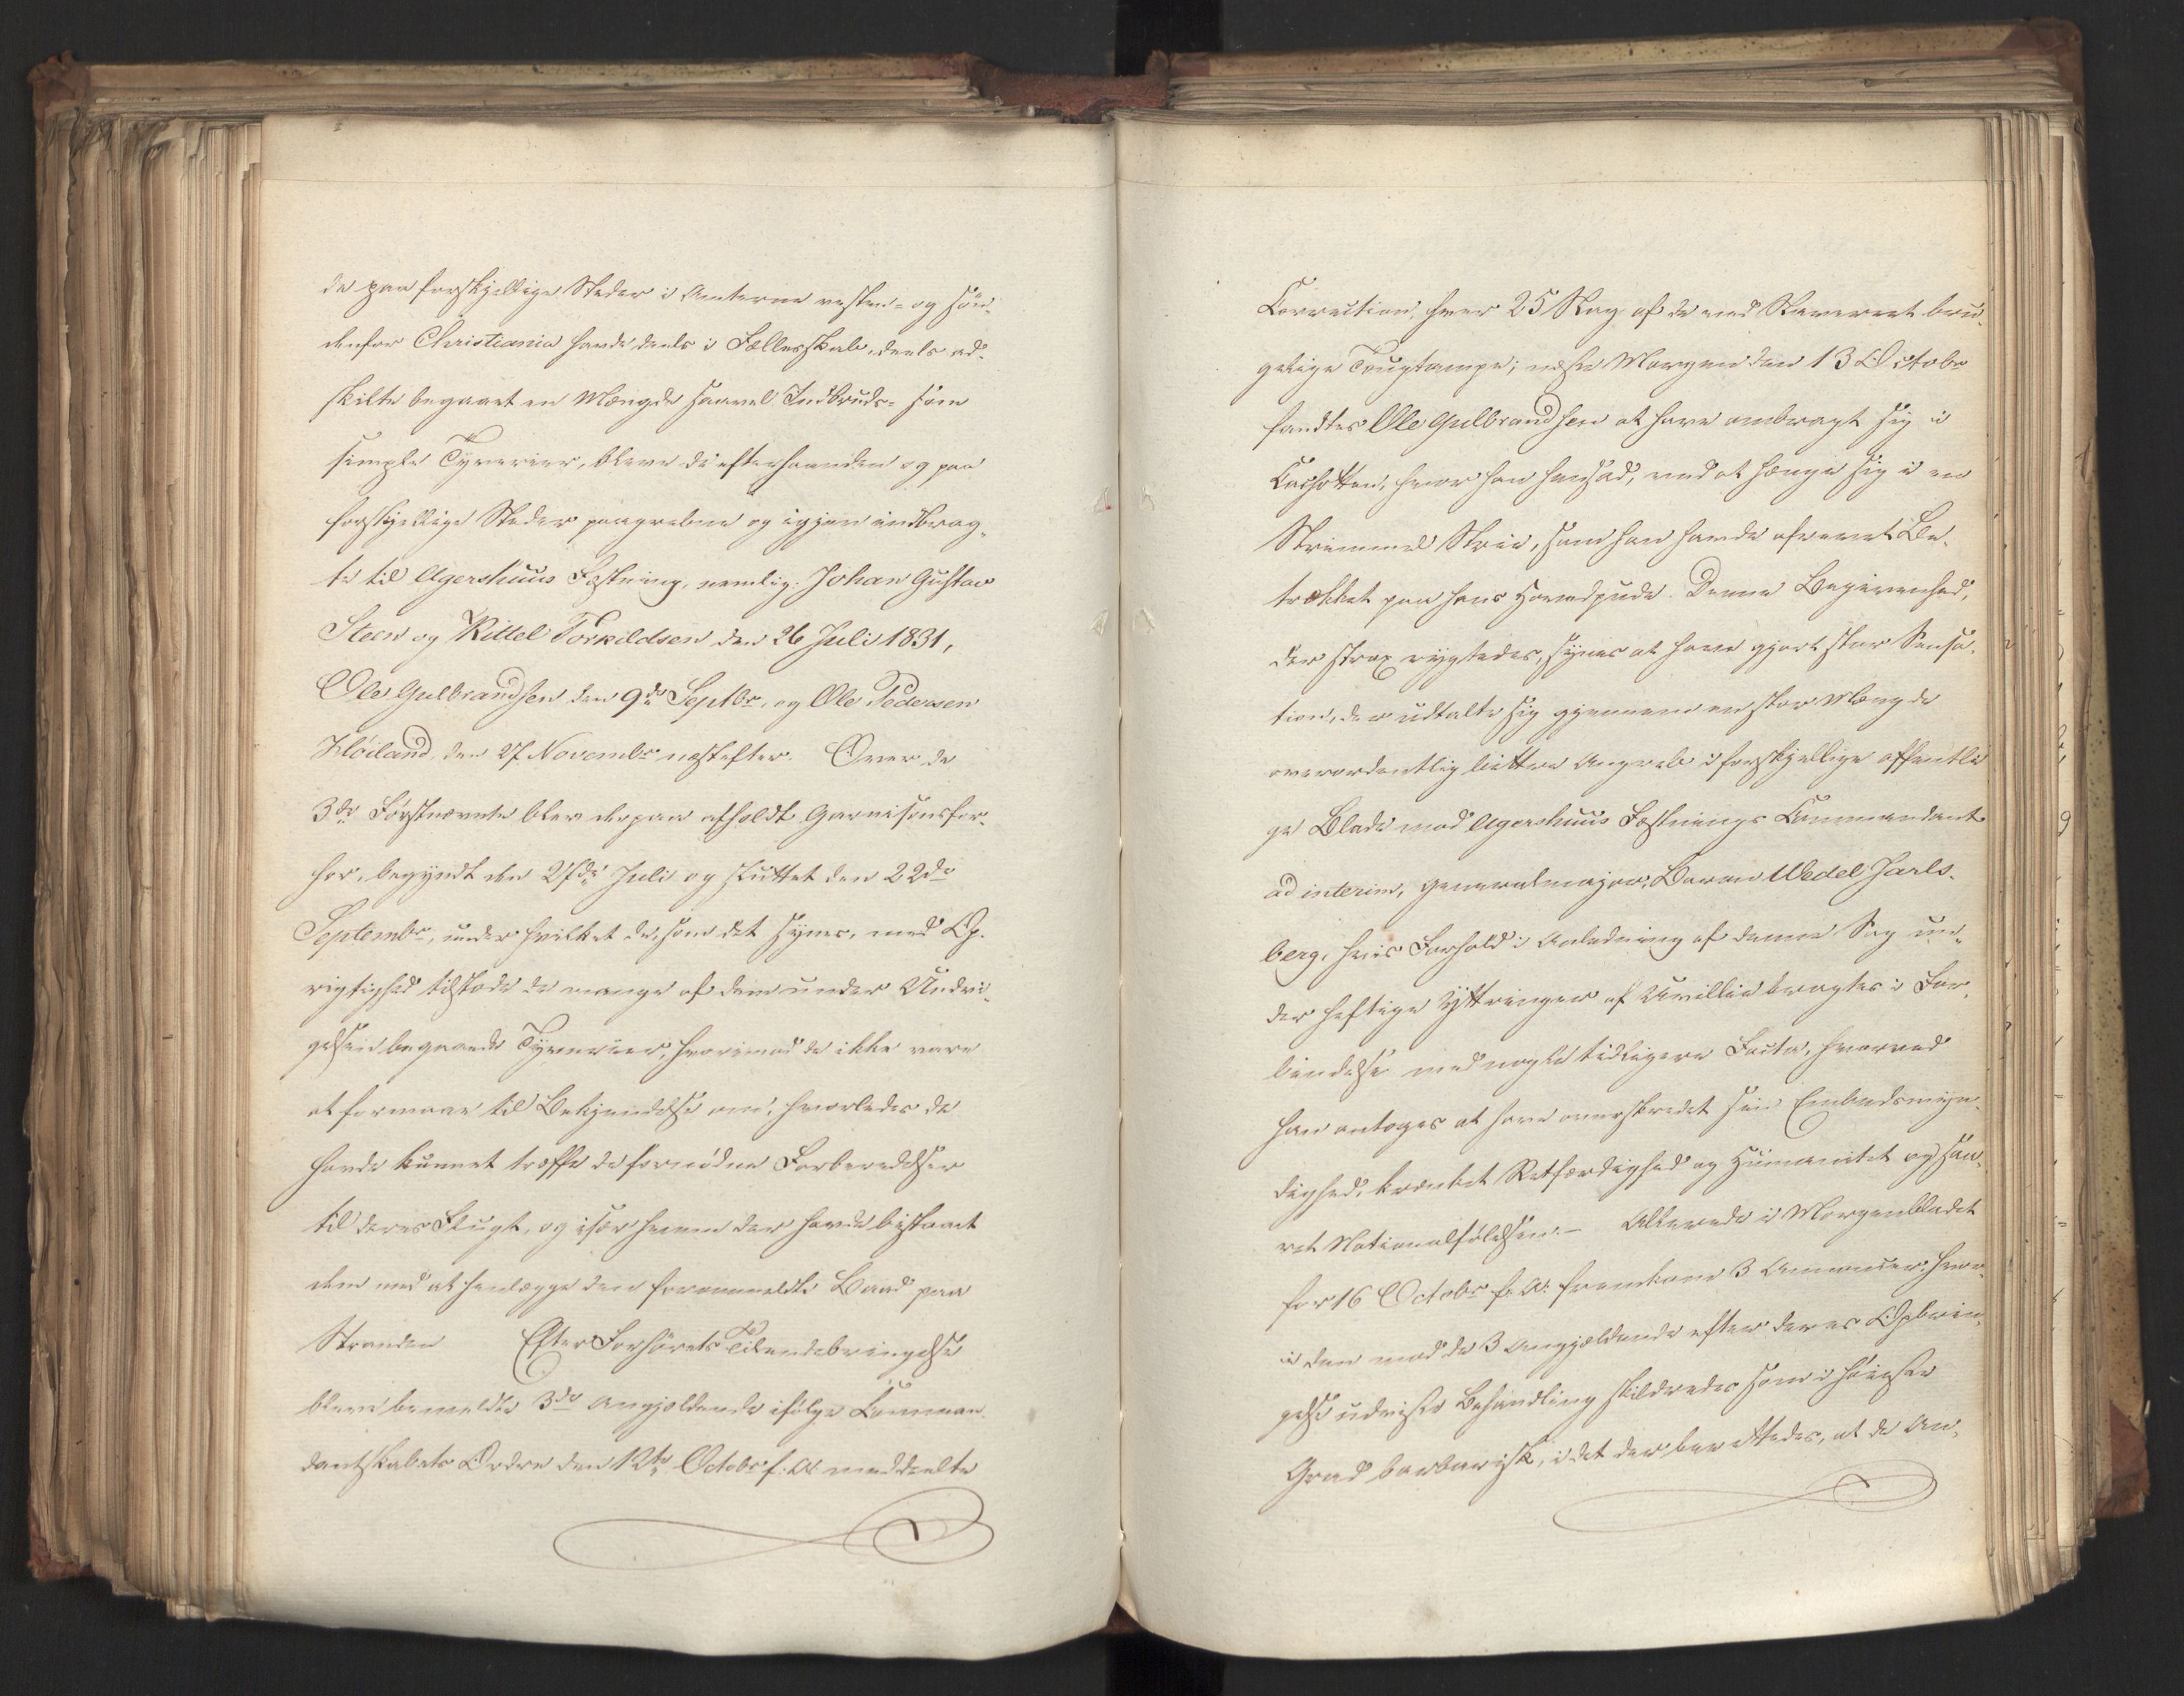 de paa forskjellige Steder i Amterne vesten- og søn-
denfor Christiania havde deels i Fællesskab, deels ad-
skilte begaaet en Mængde saavel Indbruds- som
simple Tyverier, bleve de efterhaanden og paa
forskjellige Steder paagrebne og igjen indbrag-
te til Agershuus Fæstning, nemlig: Johan Gustav
Steen og Kittel Torkildsen den 26 Juli 1831,
Ole Gulbrandsen den 9de Septbr. og Ole Pedersen
Høiland den 27 Novembr næstefter. Over de
3de Førstnævnte blev derpaa afholdt Garnisonsfor-
hør, begyndt den 27de Juli og sluttet den 22de
Septembr, under hvilket de, som det synes, med Op-
rigtighed tilstode de mange af dem under Undvi-
gelsen begaaede Tyverier, hvorimod de ikke vare
at formaae til Bekjendelse om, hvorledes de
havde kunnet træffe de fornødne Forberedelser
til deres Flugt, og især hvem der havde bistaaet
dem med at henlægge den foranmeldte Baad paa
Stranden Efter Forhørets Tilendebringelse
bleve bemeldte 3de Angjældende ifølge Comman-
dantskabets Ordre den 12te Octobr f: A: meddeelte
Correction, hver 25 Slag af de ved Slaveriet bru-
gelige Tougtampe; næste Morgen den 13 Octobr
fandtes Ole Gulbrandsen at have ombragt sig i
Cachotten, hvor han hensad, ved at hænge sig i en
Strimmel Strie, som han havde afrevet Be-
trækket paa hans Hovedpude. Denne Begivenhed,
der strax rygtedes, synes at have gjort stor Sensa-
tion, der udtalte sig gjennem en stor Mængde
overordentlig bittre Angreb i forskjellige offentli
ge Blade mod Agershuus Fæstnings Commandant
ad interim, Generalmajor, Baron Wedel Jarls-
berg, hvis Forhold i Anledning af denne Sag un-
der heftige Yttringer af Uvillie bragtes i For-
bindelse med nogle tidligere Facta, hvorved
han antoges at have overskredet sin Embedsmyn-
dighed, krænket Retfærdighed og Humanitet og saa-
ret Nationalfølelsen. – Allerede i Morgenbladet
for 16 Octobr f: A: fremkom 3 Annoncer, hvor-
i den mod de 3 Angjældende efter deres Opbrin-
gelse udviste Behandling skildredes som i høieste
Grad barbarisk, i det der berettedes, at de An-